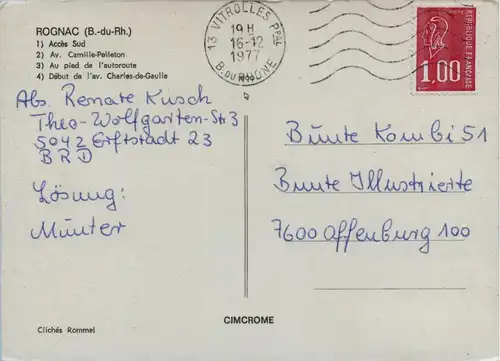 ROGNAC (B.-du-Rh.)
1) Accès Sud
2) Av. Camille-Pelletan
3) Au pied de l'autoroute
4) Début de l'av. Charles-de-Gaulle
13 VITROLLES Ppal
19 H
16-12
1977
B. DU RHÔNE
REPUBLIQUE FRANCAISE
1,00
Abs. Renate Kusch
Theo-Wolfgarten-Str 3
5042 Erftstadt 23
BRD
Lösung:
Münter
Bunte Kombi 51
Bunte Illustrierte
7600 Offenburg 100
Clichés Rommel
CIMCROME